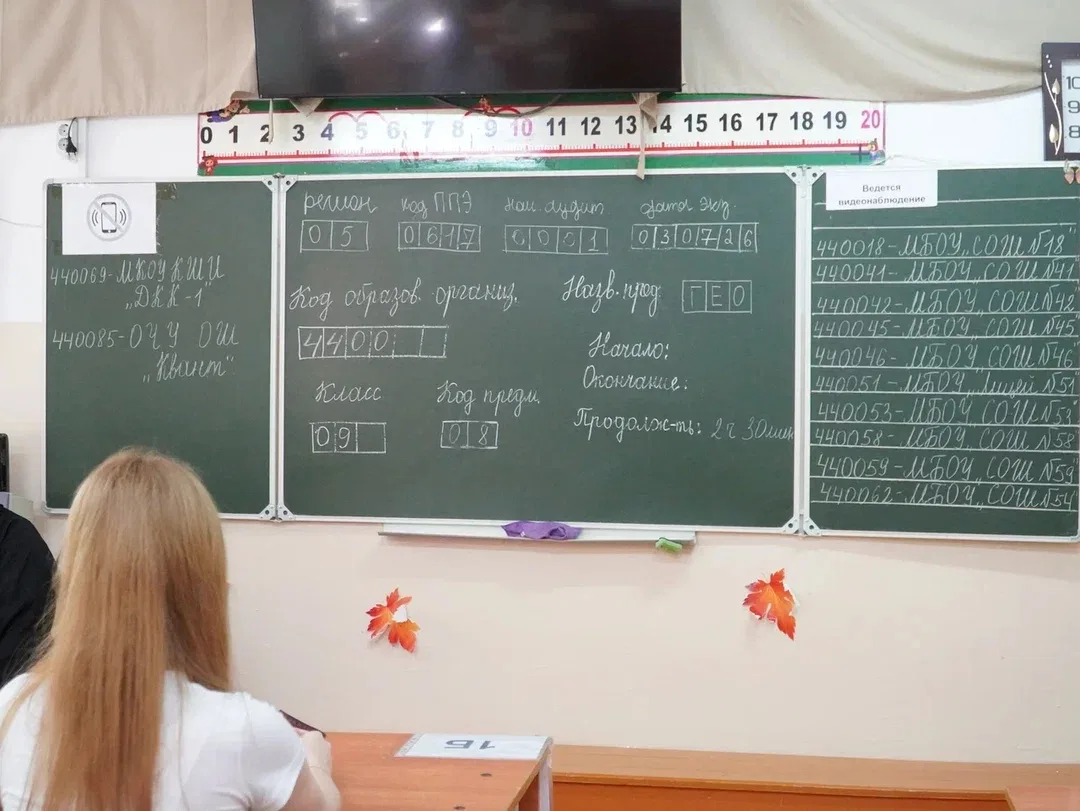 0 1 2 3 4 5 6 7 8 9 10 11 12 13 14 15 16 17 18 19 20
10
9
8
440069-МКОУ КШИ
„ДКК-1"
440085-ОЧУ ОШ
„Квант"
регион код ППЭ ном. аудит дата экз.
05 0617 0001 030726
Код образов. организ. Назв. пред. ГЕО
4400
Начало:
Окончание:
Класс Код предм.
Продолж-ть: 2ч 30мин
09 08
Ведется
видеонаблюдение
440018-МБОУ „СОШ №18"
440041-МБОУ „СОШ №41"
440042-МБОУ „СОШ №42"
440045-МБОУ „СОШ №45"
440046-МБОУ „СОШ №46"
440051-МБОУ „Лицей №51
440053-МБОУ СОШ №53"
440058-МБОУ „СОШ №58
440059-МБОУ „СОШ №59"
440062-МБОУ „СОШ №54"
1Б